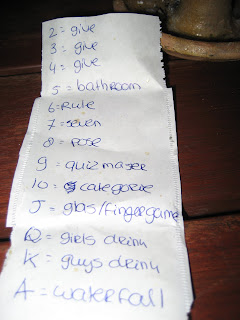 2 = give
3 = give
4 = give
5 = bathroom
6 = Rule
7 = seven
8 = pose
9 = quizmaser
10 = categorie
J = glas/fingergame
Q = girls drink
K = guys drink
A = waterfall